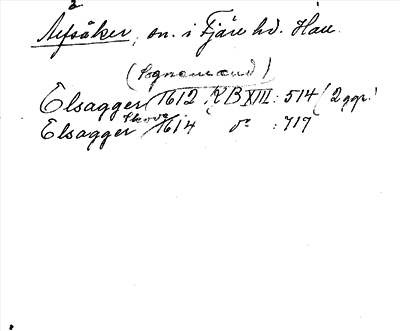 Älfsåker, sn. i Fjäre hd. Hall.
(Sognemænd)
Elsagger 1612 RB XIII: 514 (2 ggr.)
Elsagger Skove 1614 do :719